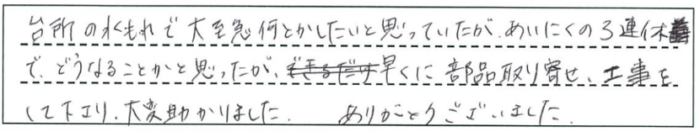 台所の水もれで大至急何とかしたいと思っていたが、あいにくの3連休
で、どうなることかと思ったが、早くに部品取り寄せ、工事を
して下さり、大変助かりました。 ありがとうございました。